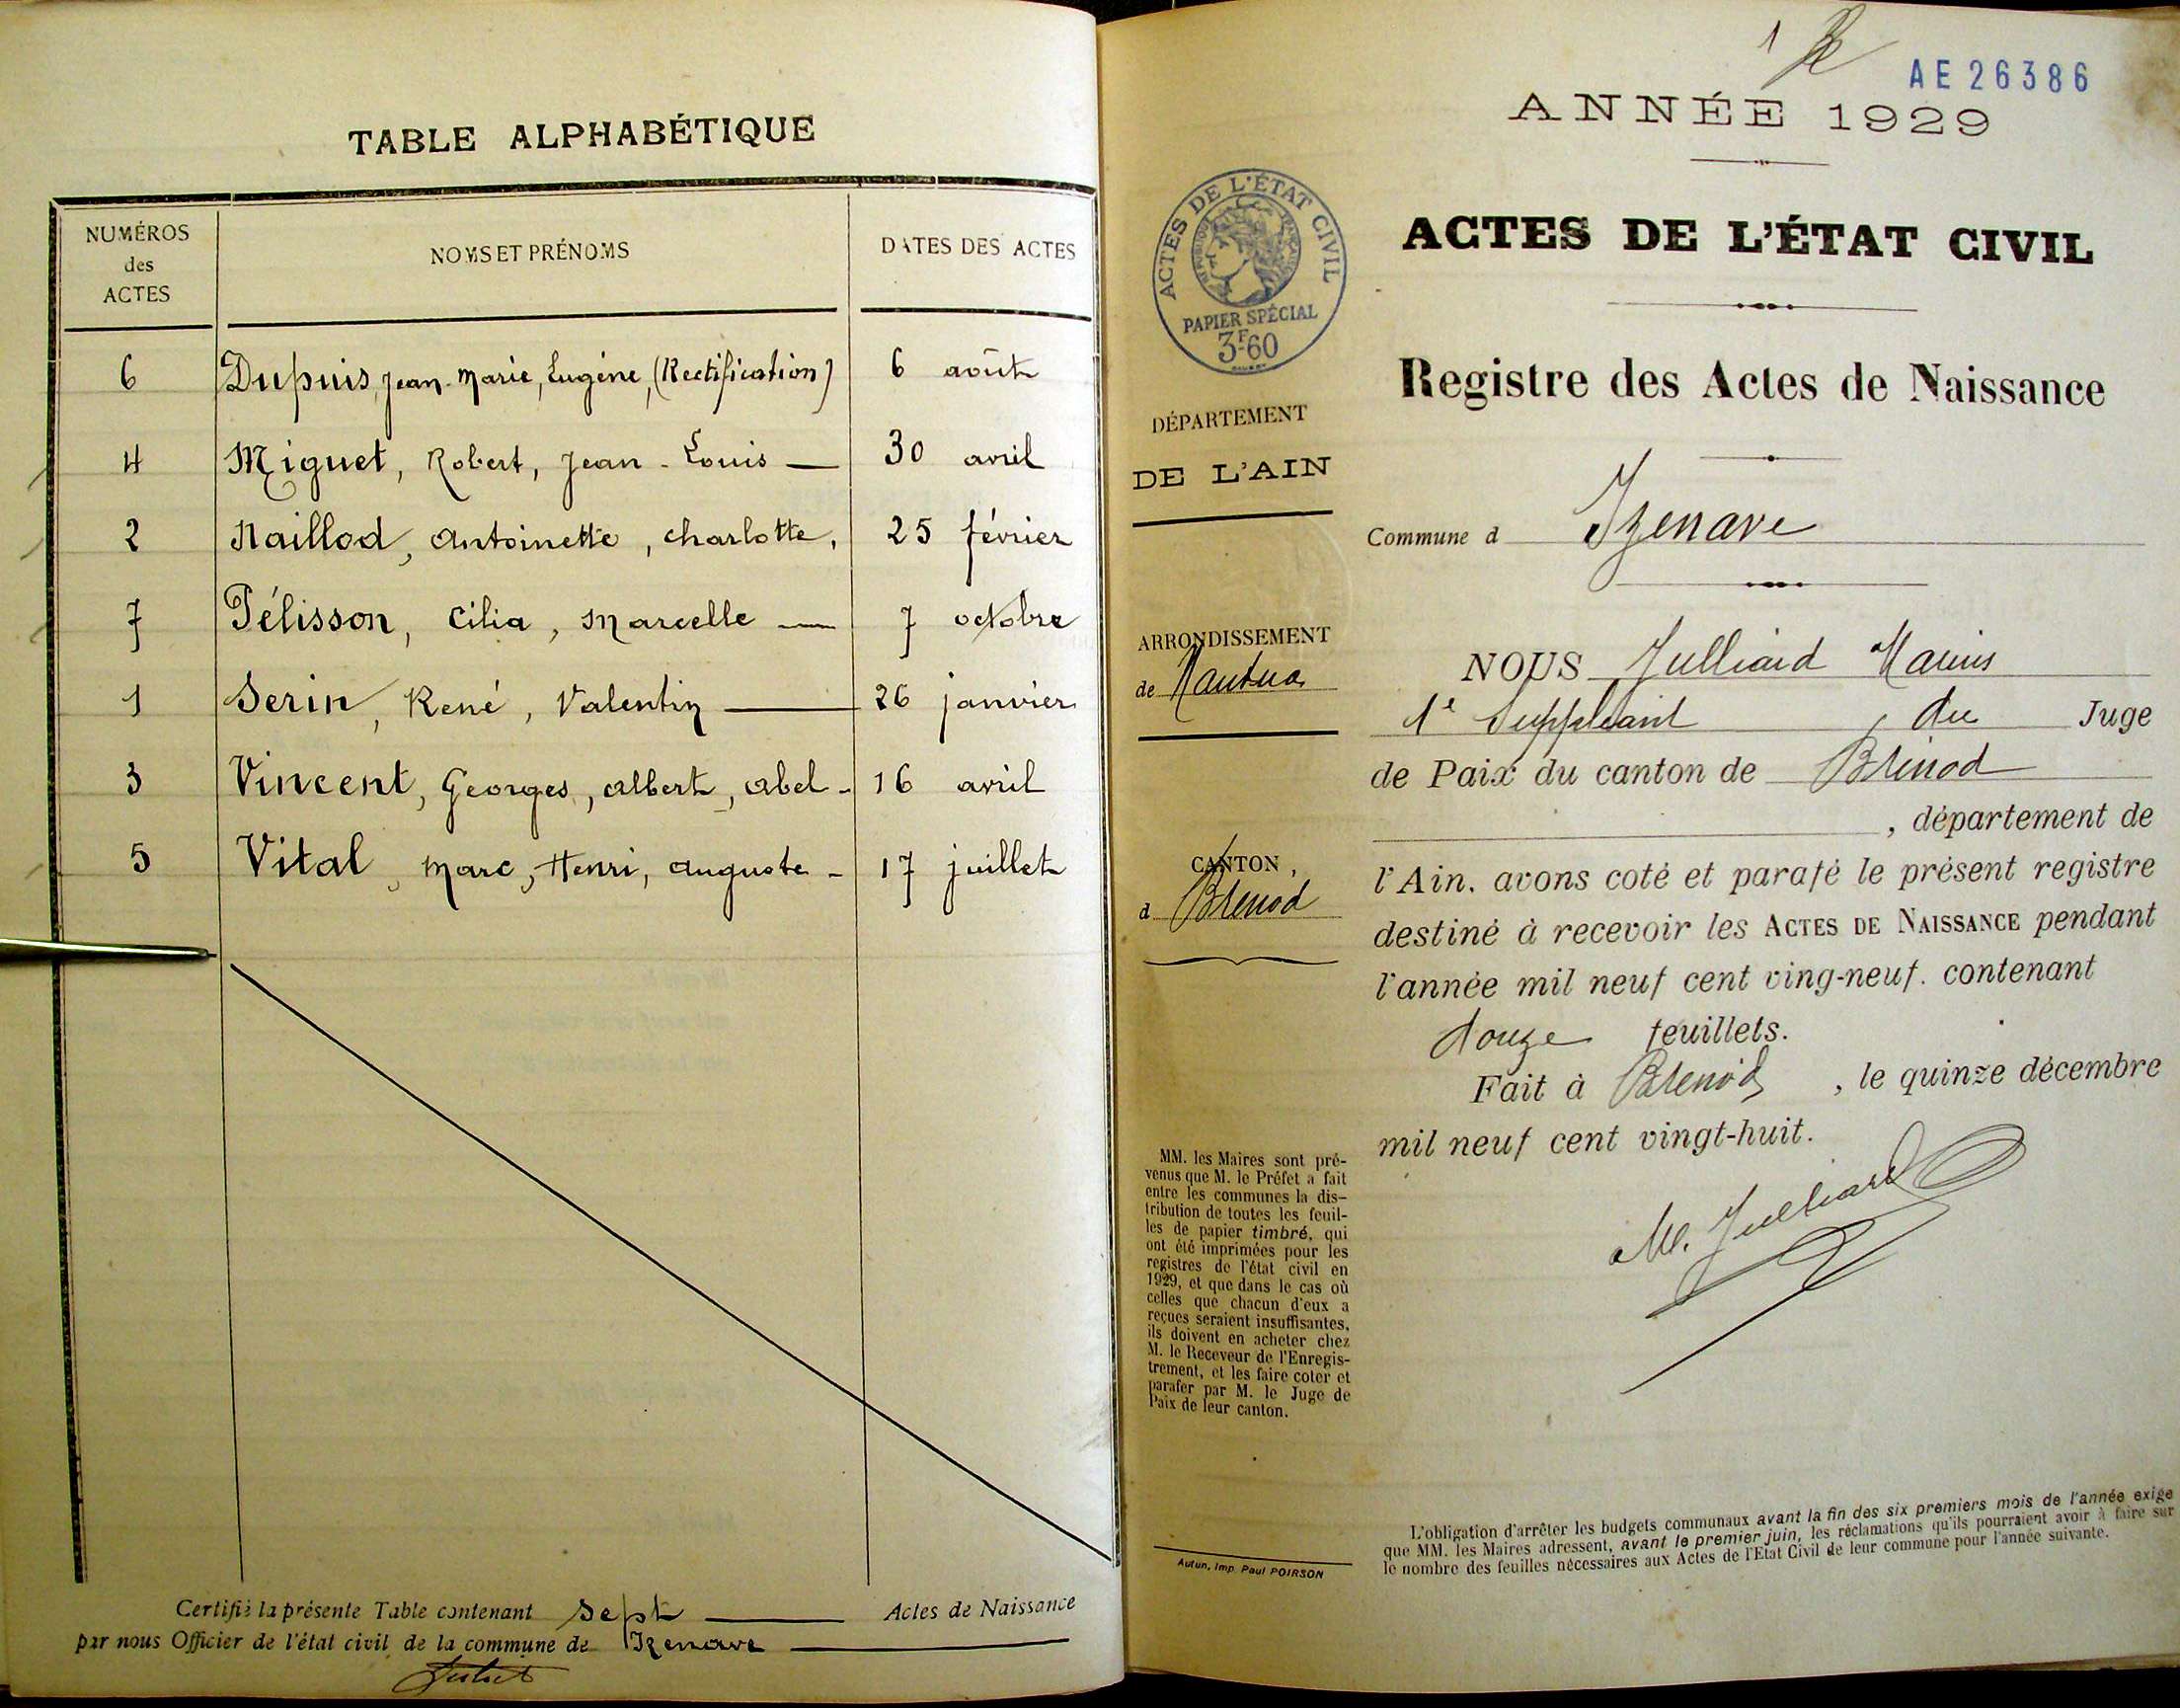 TABLE ALPHABÉTIQUE
NUMÉROS des ACTES NOMS ET PRÉNOMS DATES DES ACTES
6 Dupuis, Jean-Marie, Eugène, (Rectification) 6 août
4 Miguet, Robert, Jean-Louis — 30 avril
2 Naillod, Antoinette, Charlotte, 25 février
7 Pélisson, Cilia, Marcelle — 7 octobre
1 Serin, René, Valentin — 26 janvier
3 Vincent, Georges, Albert, Abel - 16 avril
5 Vital, Marc, Henri, Auguste - 17 juillet
Certifié la présente Table contenant sept — Actes de Naissance
par nous Officier de l'état civil de la commune de Izenave —
1
AE 26386
ANNÉE 1929
ACTES DE L'ÉTAT CIVIL
RÉPUBLIQUE FRANÇAISE
PAPIER SPÉCIAL
3F60
DÉPARTEMENT
DE L'AIN
ARRONDISSEMENT
de Nantua
CANTON
d Brenod
MM. les Maires sont pré-
venus que M. le Préfet a fait
entre les communes la dis-
tribution de toutes les feuil-
les de papier timbré, qui
ont été imprimées pour les
registres de l'état civil en
1929, et que dans le cas où
celles que chacun d'eux a
reçues seraient insuffisantes,
ils doivent en acheter chez
M. le Receveur de l'Enregis-
trement, et les faire coter et
parafer par M. le Juge de
Paix de leur canton.
Autun, Imp. Paul POIRSON
ACTES DE L'ÉTAT CIVIL
Registre des Actes de Naissance
Commune d Izenave
NOUS Julliard Marius
1e Suppléant, du Juge
de Paix du canton de Brénod
, département de
l'Ain, avons coté et parafé le présent registre
destiné à recevoir les ACTES DE NAISSANCE pendant
l'année mil neuf cent ving-neuf. contenant
douze feuillets.
Fait à Brenod, le quinze décembre
mil neuf cent vingt-huit.
M. Julliard
L'obligation d'arrêter les budgets communaux avant la fin des six premiers mois de l'année exige
que MM. les Maires adressent, avant le premier juin, les réclamations qu'ils pourraient avoir à faire sur
le nombre des feuilles nécessaires aux Actes de l'Etat Civil de leur commune pour l'année suivante.